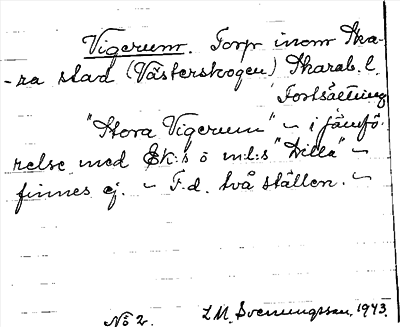 Vigerum. Torp inom Ska-
-ra stad (Västerskogen) Skarab. l.
Fortsättning
"Stora Vigerum" ~ i jämfö-
relse med Ek:s ö m:l:s "Lilla" ~
finnes ej. ~ F.d. två ställen. ~
No 2. L.M. Svenungsson, 1943.